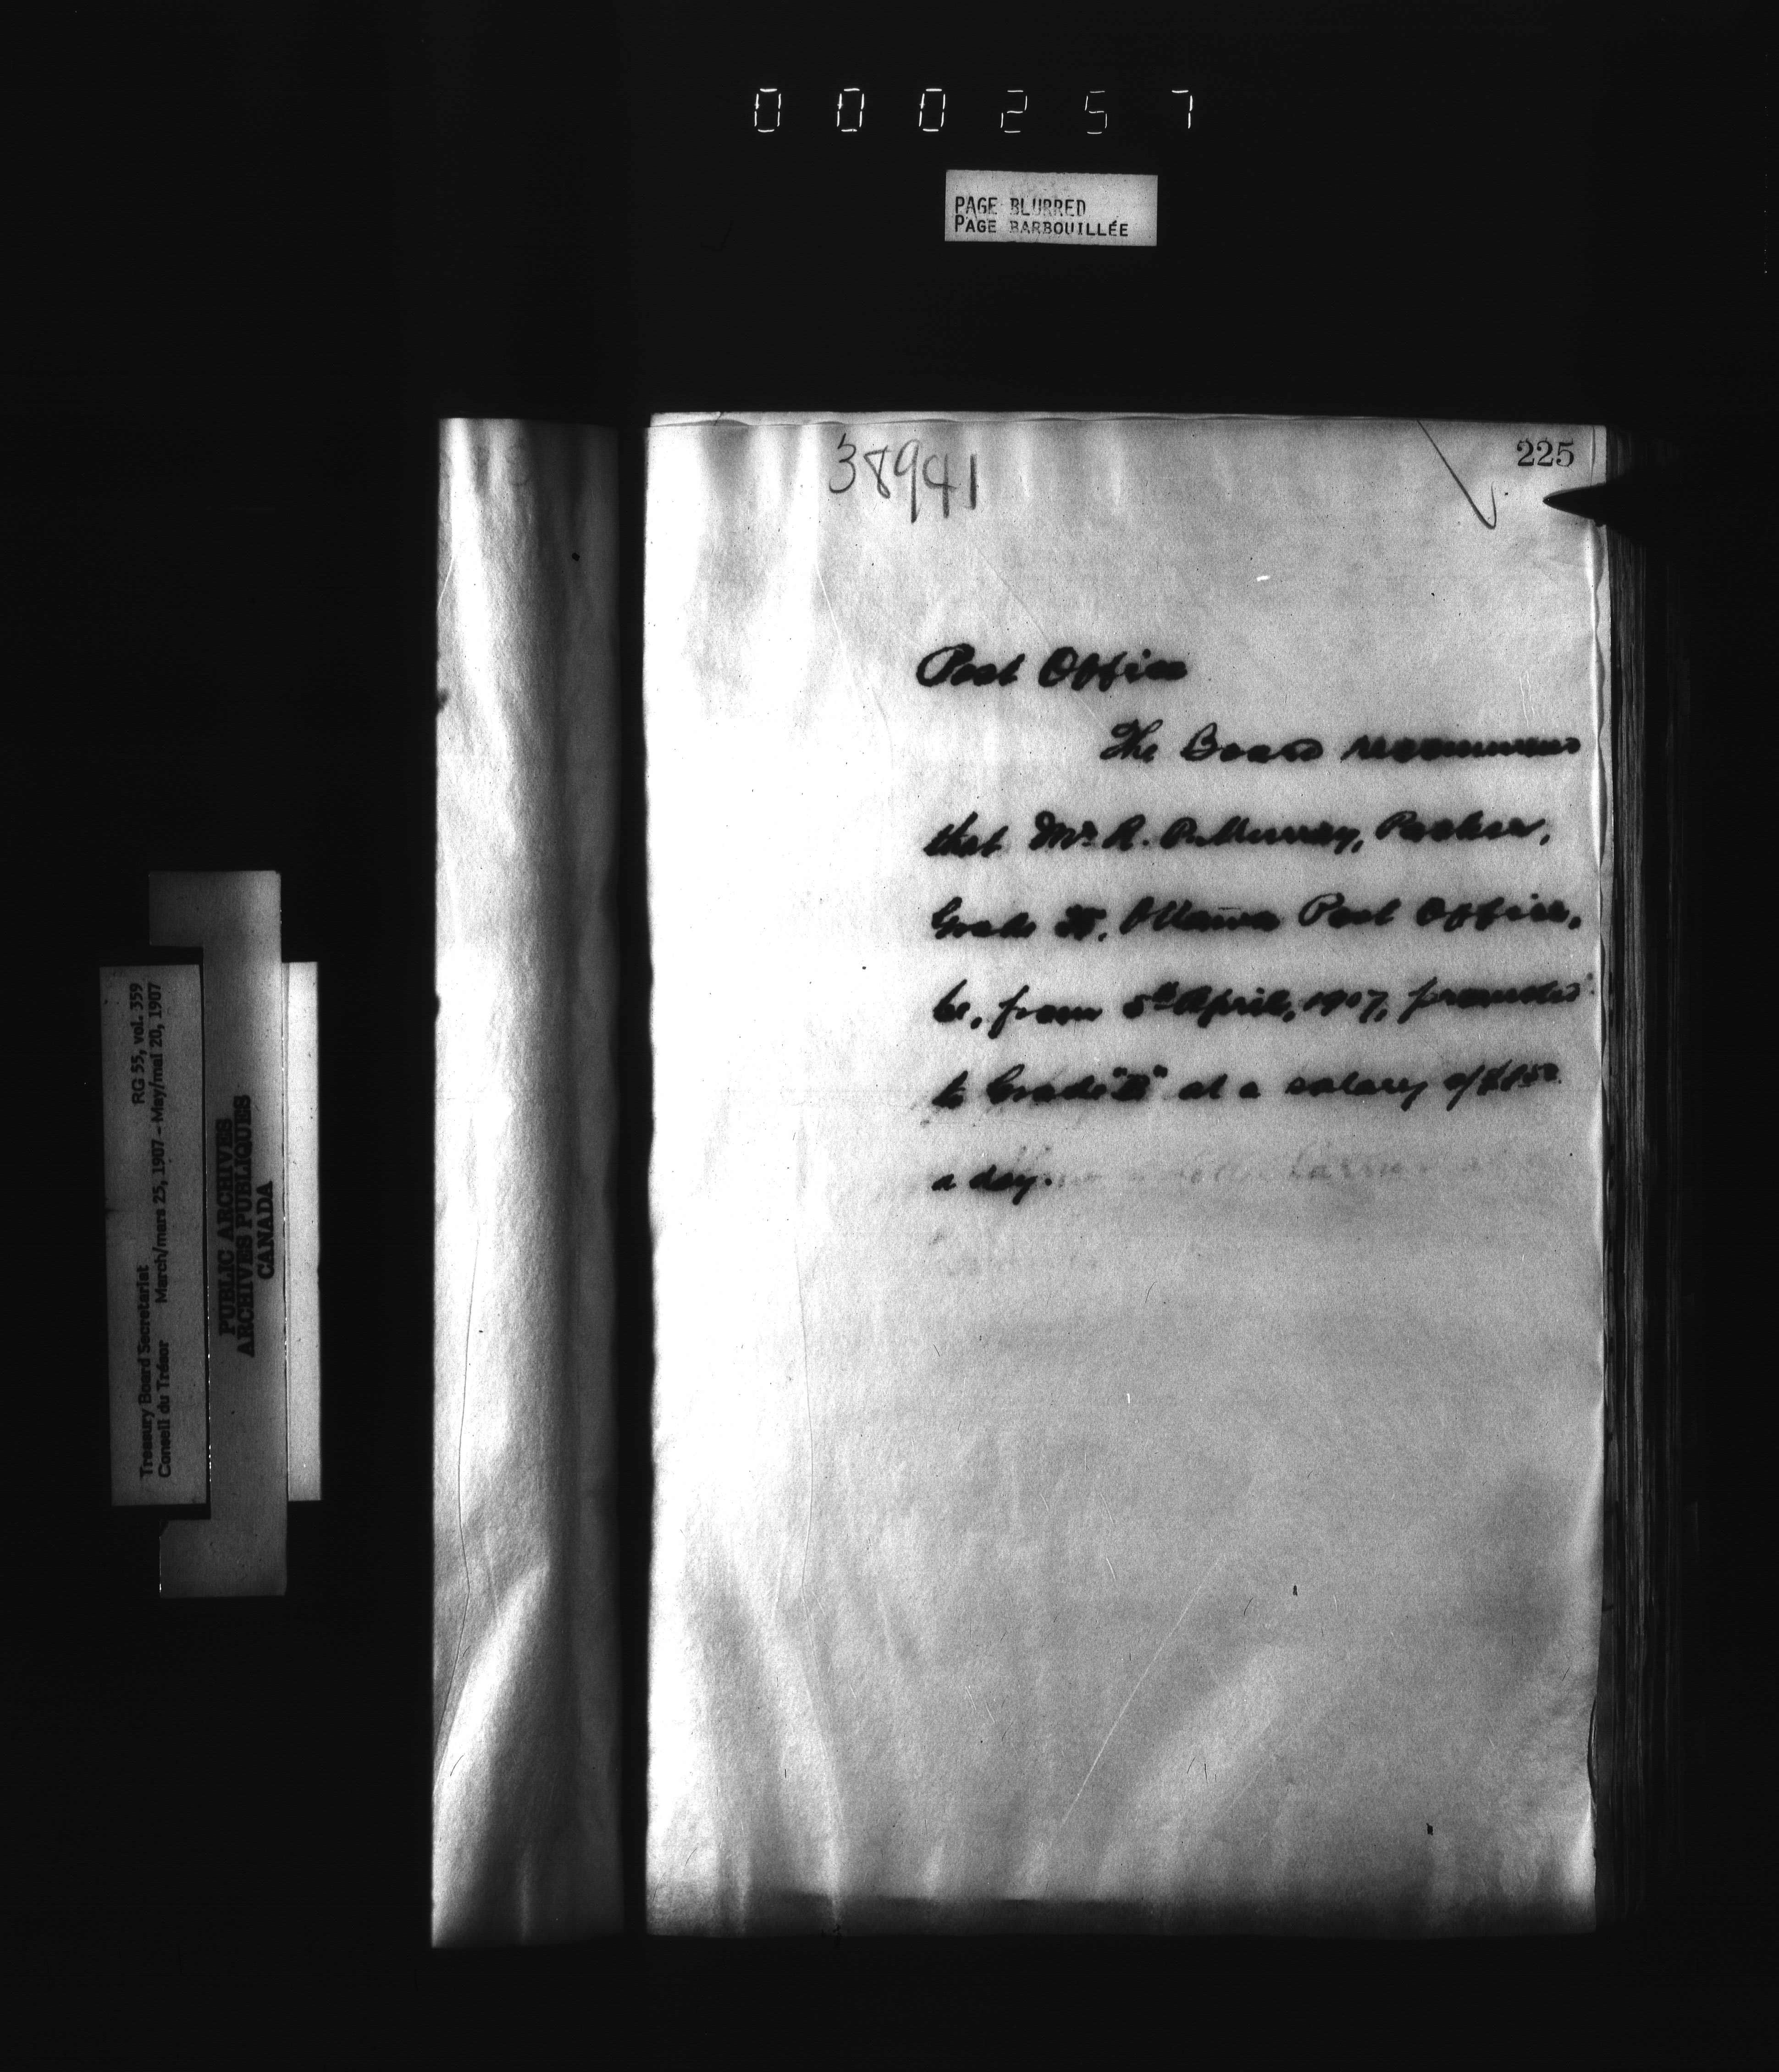 000257
PAGE BLURRED
PAGE BARBOUILLÉE
38941
225
Post Office
The Board recommend
that Mr. R. P. Murray, Packer,
Grade Ottawa Post Office,
be, from 5th April, 1907, promoted
to Grade "B" at a salary of
a day.
Treasury Board Secretariat RG 55, vol. 359
Conseil du Trésor March/mars 25, 1907 - May/mai 20, 1907
PUBLIC ARCHIVES
ARCHIVES PUBLIQUES
CANADA